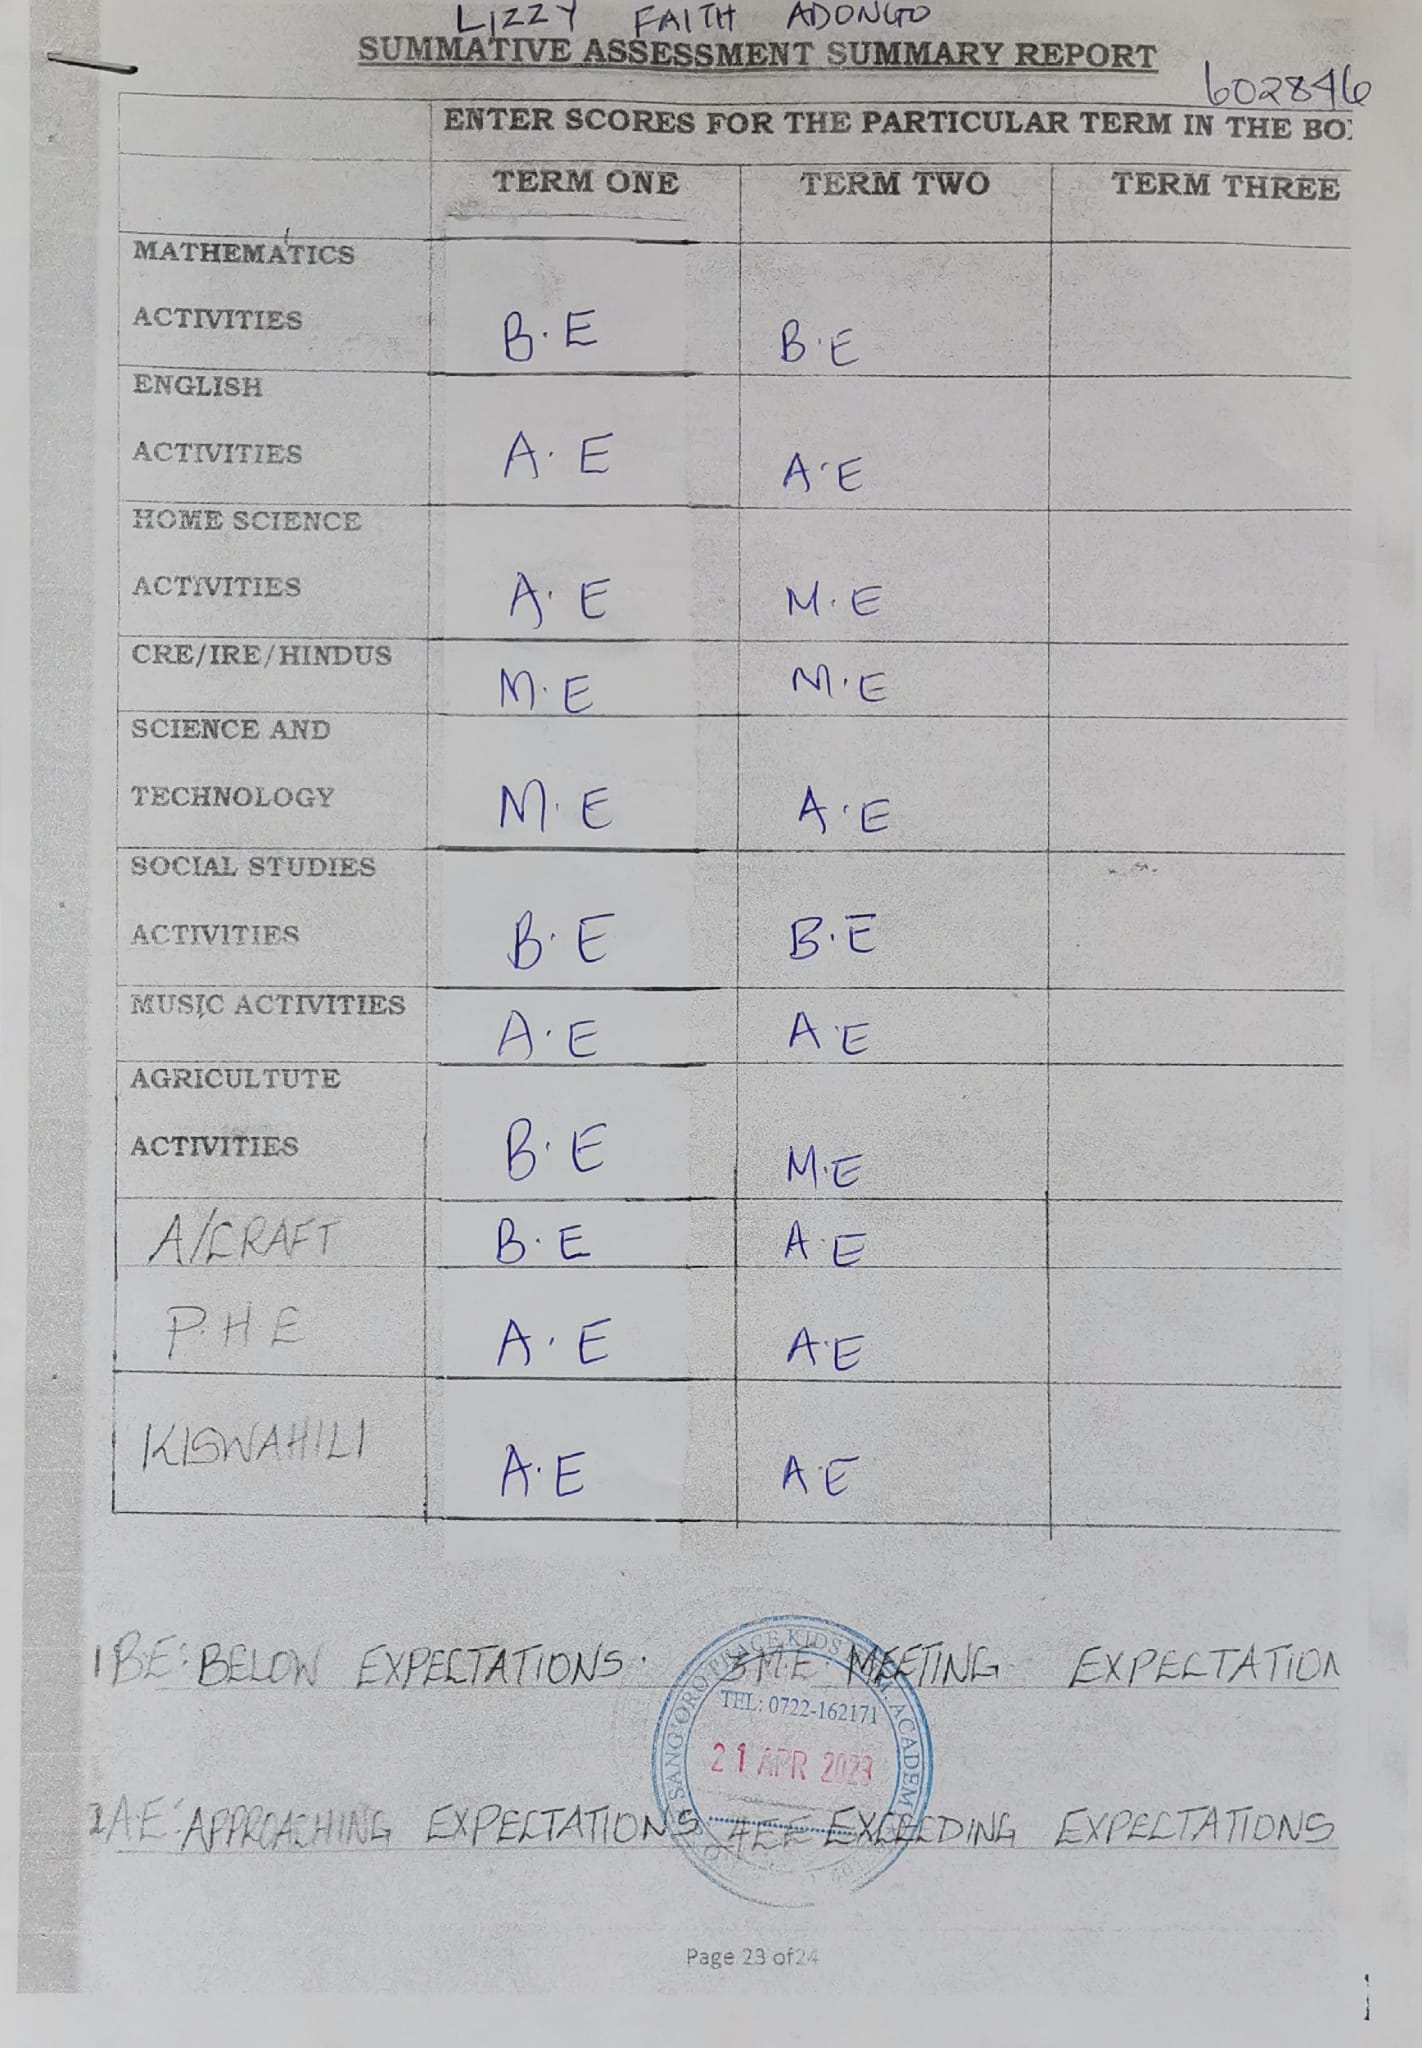 LIZZY FAITH ADONGO
SUMMATIVE ASSESSMENT SUMMARY REPORT
602846
ENTER SCORES FOR THE PARTICULAR TERM IN THE BO
TERM ONE TERM TWO TERM THREE
MATHEMATICS
ACTIVITIES B.E B.E
ENGLISH
ACTIVITIES A.E A.E
HOME SCIENCE
ACTIVITIES A.E M.E
CRE/IRE/HINDUS M.E M.E
SCIENCE AND
TECHNOLOGY M.E A.E
SOCIAL STUDIES
ACTIVITIES B.E B.E
MUSIC ACTIVITIES A.E A.E
AGRICULTUTE
ACTIVITIES B.E M.E
A/CRAFT B.E A.E
P.H.E A.E A.E
KISWAHILI A.E A.E
1 BE: BELOW EXPECTATIONS. 3 M.E MEETING EXPECTATION
SANG'ORO PEACE KIDS ACADEM
TEL: 0722-162171
21 APR 2023
2 A.E: APPROACHING EXPECTATIONS 4 E.E EXCEEDING EXPECTATIONS
Page 23 of 24